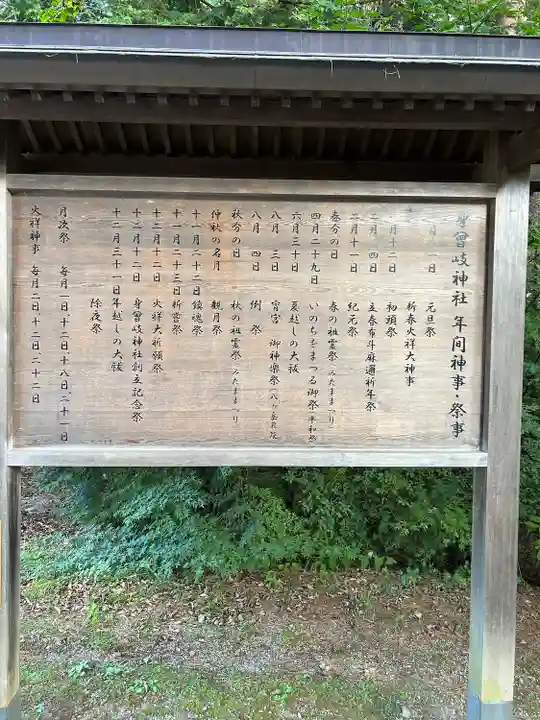 身曾岐神社 年間神事・祭事
月 一日 元旦祭
新春火祥大神事
月十二日 初頭祭
二月 四日 立春布斗麻邇祈年祭
二月十一日 紀元祭
春分の日 春の祖霊祭(みたままつり)
四月二十九日 いのちをまつる御祭(平和祭)
六月三十日 夏越しの大祓
八月 三日 宵宮 御神楽祭(八ヶ岳薪能)
八月 四日 例祭
秋分の日 秋の祖霊祭(みたままつり)
仲秋の名月 観月祭
十一月二十二日 鎮魂祭
十一月二十三日 新嘗祭
十二月十二日 火祥大祈願祭
十二月二十二日 身曾岐神社創立記念祭
十二月三十一日 年越しの大祓
除夜祭
月次祭 毎月一日、十一日、十八日、二十一日
火祥神事 毎月二日、十二日、二十二日